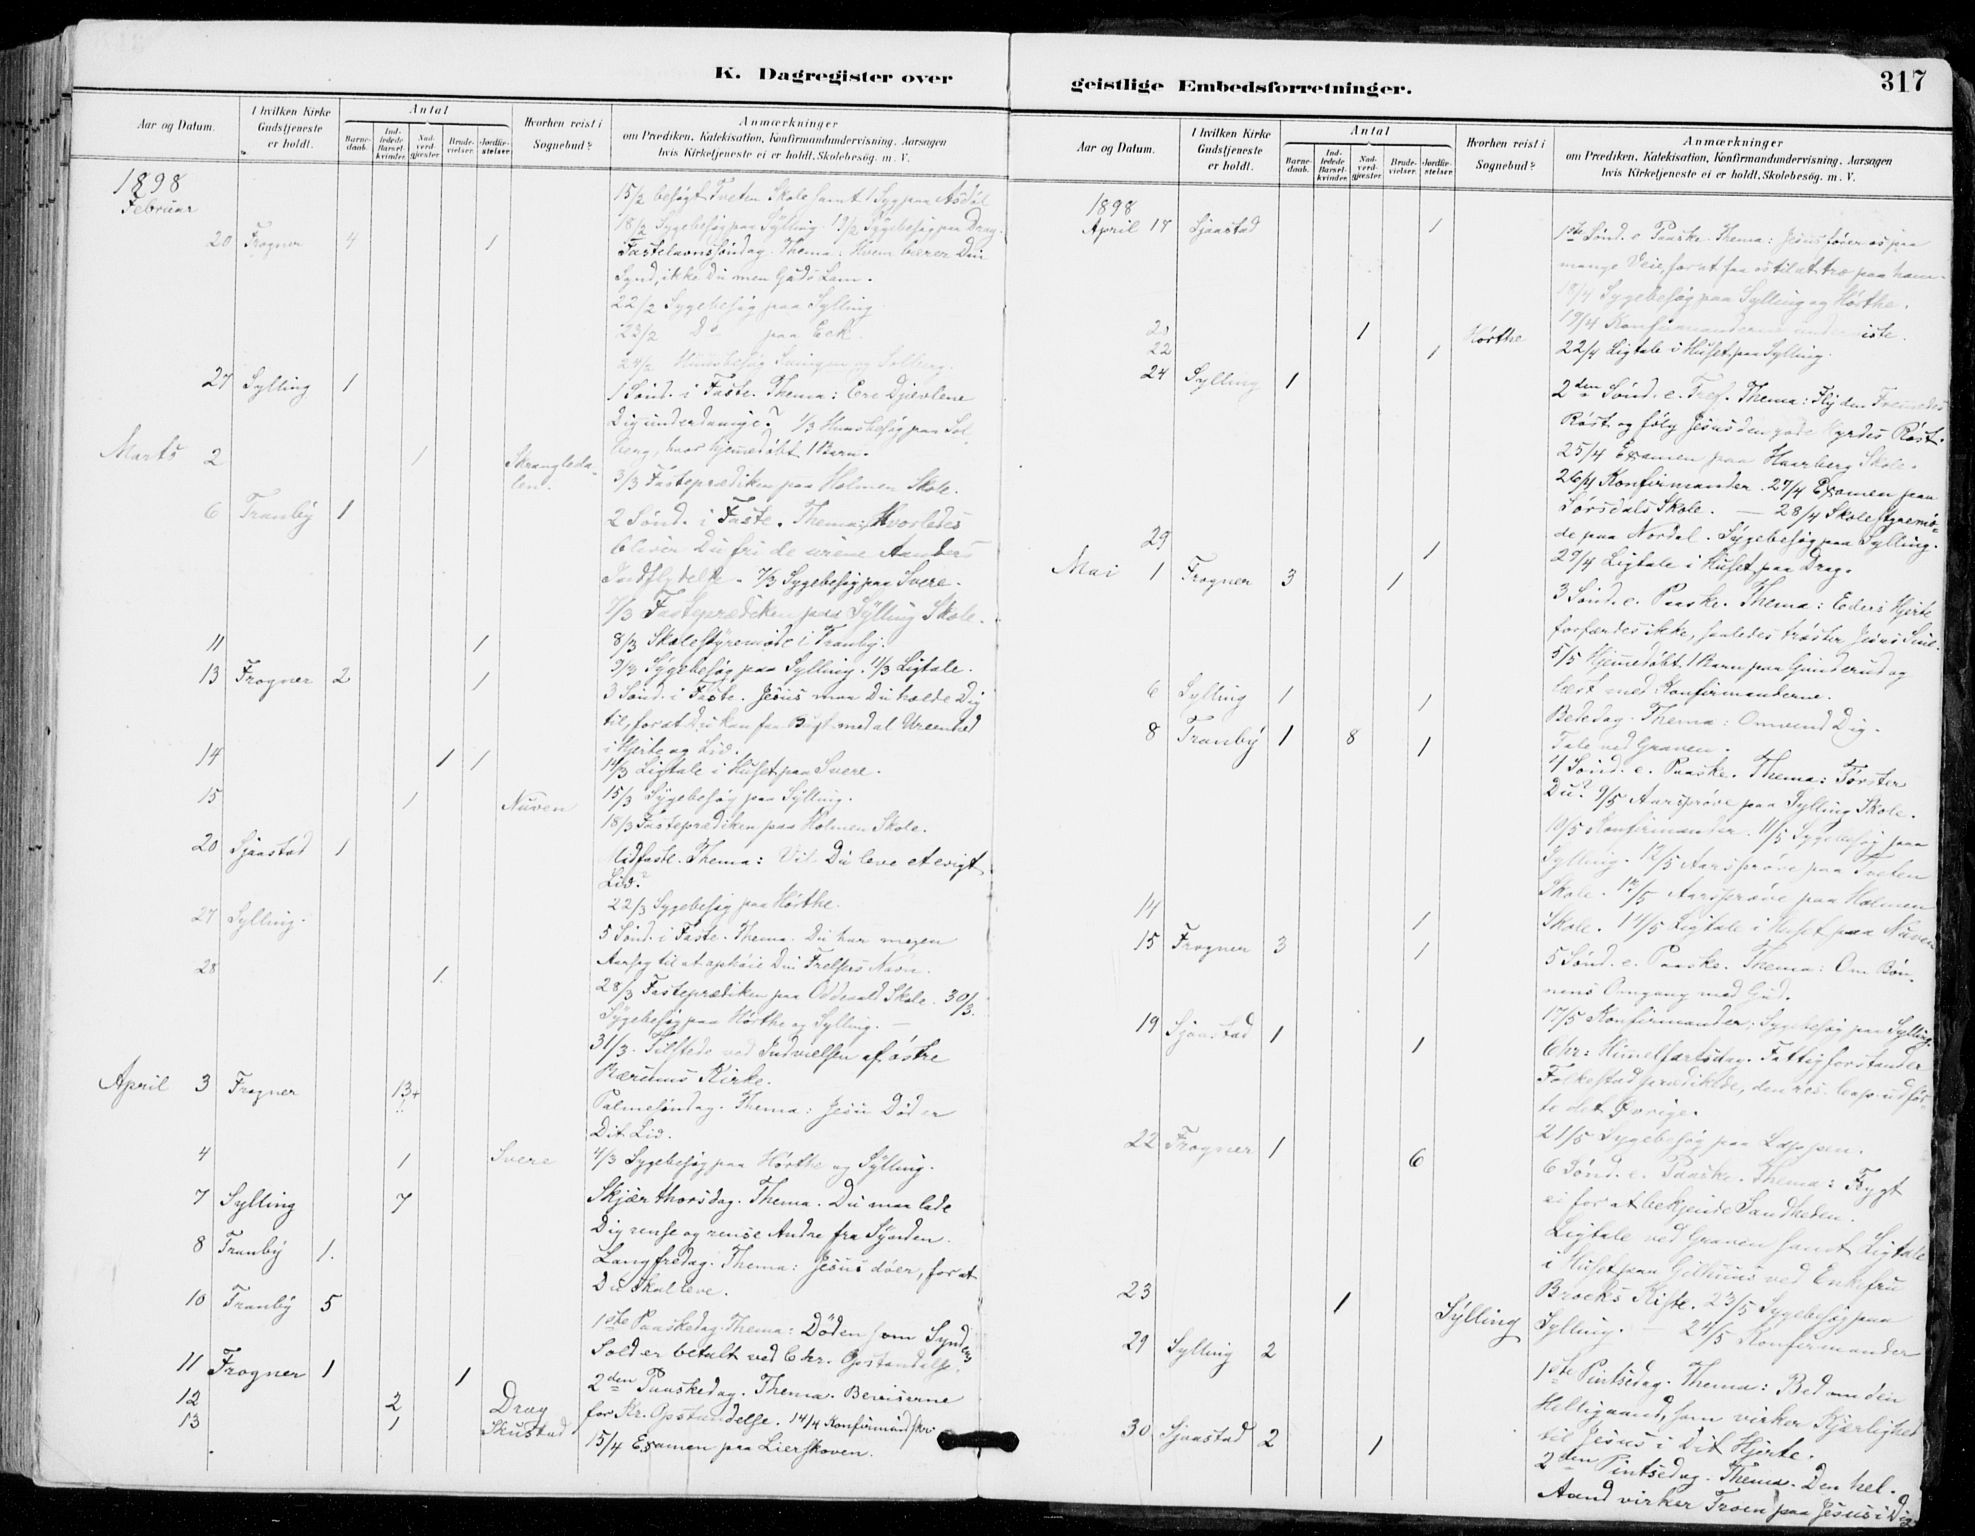 K. Dagregister over
geistlige Embedsforretninger.
317
Aar og Datum.
I hvilken Kirke Gudstjeneste er holdt.
Antal
Barnedaab.
Indledede Barselkvinder.
Nadverdgjester
Brudevielser.
Jordfæstelser
Hvorhen reist i Sognebud?
Anmærkninger
om Prædiken, Katekisation, Konfirmandundervisning, Aarsagen
hvis Kirketjeneste ei er holdt, Skolebesøg. m. V.
1898
Februar
15/2 besøgt Tveten Skole samt 1 Syg paa Asdøl
18/2 Sygebesøg paa Sylling. 19/2 Sygebesøg paa Drag.
20 Frogner 4 1 Fastelavnssøndag. Thema: Hvem bærer Din
Synd, ikke Du men Guds Lam.
22/2 Sygebesøg paa Sylling
23/2 Do paa Eck.
24/2 Huusbesøg
27 Sylling 1 1 Sønd. i Faste. Thema: Ere Djævlene
Dig underdanige? 1/3 Huusbesøg paa Sol-
berg, hvor hjemmedøbt 1 Barn.
Marts 2 1 Skrangleda-
len. 3/3 Fasteprædiken paa Holmen Skole.
6 Tranby 1 2 Sønd. i Faste. Thema: Hvorledes
bliver Du fri de urene Aanders
Indflydelse. 7/3 Sygebesøg paa Svere.
7/3 Fasteprædiken paa Sylling Skole.
11 1 8/3 Skolestyremøde i Tranby.
9/3 Sygebesøg paa Sylling. 11/3 Ligtale.
13 Frogner 2 1 3 Sønd. i Faste. Jesus maa Du holde Dig
til, forat Du kan faa Bugt med al Ureenhed
i Hjerte og Liv.
14 1 1 14/3 Ligtale i Huset paa Svere.
15 1 Nuven 15/3 Sygebesøg paa Sylling.
18/3 Fasteprædiken paa Holmen Skole.
20 Sjaastad 1 Midfaste. Thema: Vil Du leve et evigt
Liv?
22/3 Sygebesøg paa Hørthe.
27 Sylling. 5 Sønd. i Faste. Thema. Du har megen
Aarsag til at ophøie Din Frelsers Navn.
28 1. 28/3 Fasteprædiken paa Oddevald Skole. 30/3.
Sygebesøg paa Hørthe og Sylling. —
31/3. Tilstede ved Indvielsen af østre
Bærums Kirke.
April 3 Frogner 13+ Palmesøndag. Thema: Jesu Død er
Dit Liv.
4 1 Svere 4/3 Sygebesøg paa Hørthe og Sylling.
7 Sylling 7 Skjærthorsdag. Thema. Du maa lade
Dig rense og rense Andre fra Synden.
8 Tranby 1. Langfredag. Thema: Jesus døer, for at
Du skal leve.
10 Tranby 5 1ste Paaskedag. Thema: Døden som Syndens
Sold er betalt ved Chr. Opstandelse.
11 Frogner 1 1 2den Paaskedag. Thema. Beviserne
12 2 Drag for Kr. Opstandelse. 14/4 Konfirmandskri
13 1 Skustad 15/4 Examen paa Lierskoven.
Aar og Datum.
I hvilken Kirke Gudstjeneste er holdt.
Antal
Barnedaab.
Indledede Barselkvinder.
Nadverdgjester
Brudevielser.
Jordfæstelser
Hvorhen reist i Sognebud?
Anmærkninger
om Prædiken, Katekisation, Konfirmandundervisning, Aarsagen
hvis Kirketjeneste ei er holdt, Skolebesøg. m. V.
1898
April 17 Sjaastad 1 1ste Sønd. e. Paaske. Thema: Jesus fører os paa
mange Veie, for at faa os til at tro paa ham.
18/4 Sygebesøg paa Sylling og Hørthe.
21 1 Hørthe 19/4 Konfirmanderne underviste.
22 1 22/4 Ligtale i Huset paa Sylling.
24 Sylling 1 2den Sønd. e. Thema: Fly den Fremedes
Røst og følg Jesus den gode Hyrdes Røst.
25/4 Examen paa Haarberg Skole.
26/4 Konfirmander. 27/4 Examen paa
Sørsdals Skole. — 28/4 Skolestyremø-
de paa Nordal. Sygebesøg paa Sylling.
29 1 29/4 Ligtale i Huset paa Drag.
Mai 1 Frogner 3 1 3 Sønd. e. Paaske. Thema: Eders Hjerte
forfærdes ikke, saaledes trøster Jesus Sine.
5/5 Hjemmedøbt 1 Barn paa og
læst med Konfirmanderne.
6 Sylling 1 1 Bededag. Thema: Omvend Dig.
Tale ved Graven.
8 Tranby 1 8 1 4 Sønd. e. Paaske. Thema: Tørster
Du? 9/5 Aarsprøve paa Sylling Skole.
10/5 Konfirmander. 11/5 Sygebesøg paa
Sylling. 12/5 Aarsprøve paa Tveten
Skole. 13/5 Aarsprøve paa Holmen
14 1 Skole. 14/5 Ligtale i Huset paa Nuven
15 Frogner 3 1 5 Sønd. e. Paaske. Thema: Om Bøn-
nens Omgang med Gud.
17/5 Konfirmander. Sygebesøg paa Sylling.
19 Sjaastad 1 1 Chr: Himelfartsdag. Fattigforstander
Folkestad prædikede, den res. Cap. udfør-
te det Øvrige.
21/5 Sygebesøg paa Løppen.
22 Frogner 1 6 6 Sønd. e. Paaske. Thema: Frygt
ei for at bekjende Sandheden.
Ligtale ved Graven samt Ligtale
i Huset paa Gilhuus ved Enkefru
Brocks Kiste. 23/5 Sygebesøg paa
23 1 Sylling Sylling. 24/5 Konfirmander
29 Sylling 2 1ste Pintsedag. Thema: Bed om den
Helligaand, som virker Kjærlighed
til Jesus i Dit Hjerte.
30 Sjaastad 2 1 2den Pintsedag. Thema. Den hel.
Aand virker Troen paa Jesus i Dig